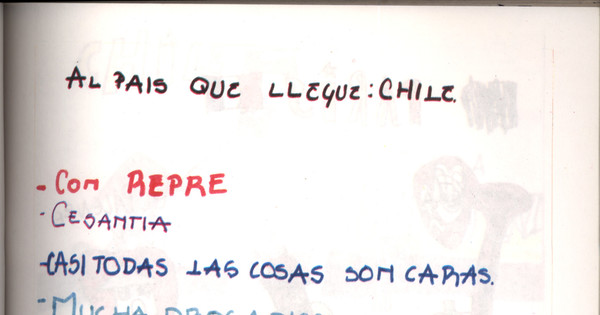 AL PAIS QUE LLEGUE: CHILE.
- COM REPRE
- CESANTIA
- CASI TODAS LAS COSAS SON CARAS.
- MUCHA